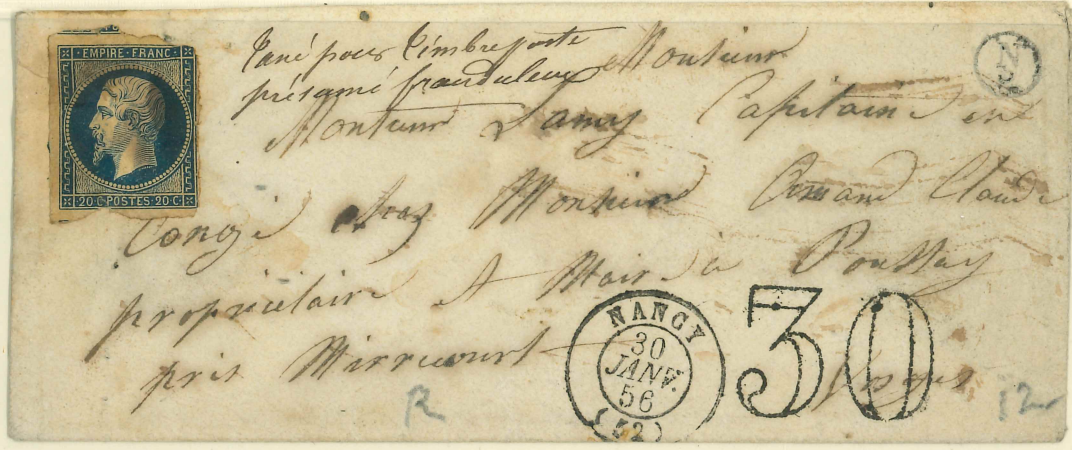 EMPIRE · FRANC ·
20 C POSTES · 20 · C ·
Taxé pour timbre poste
présumé frauduleux
N
Monsieur
Monsieur Lamy Capitaine en
Congé chez Monsieur Claude
propriétaire et Mair de Poussay
près Mirecourt
Vosges
NANCY
30
JANV.
56
(52)
30
12